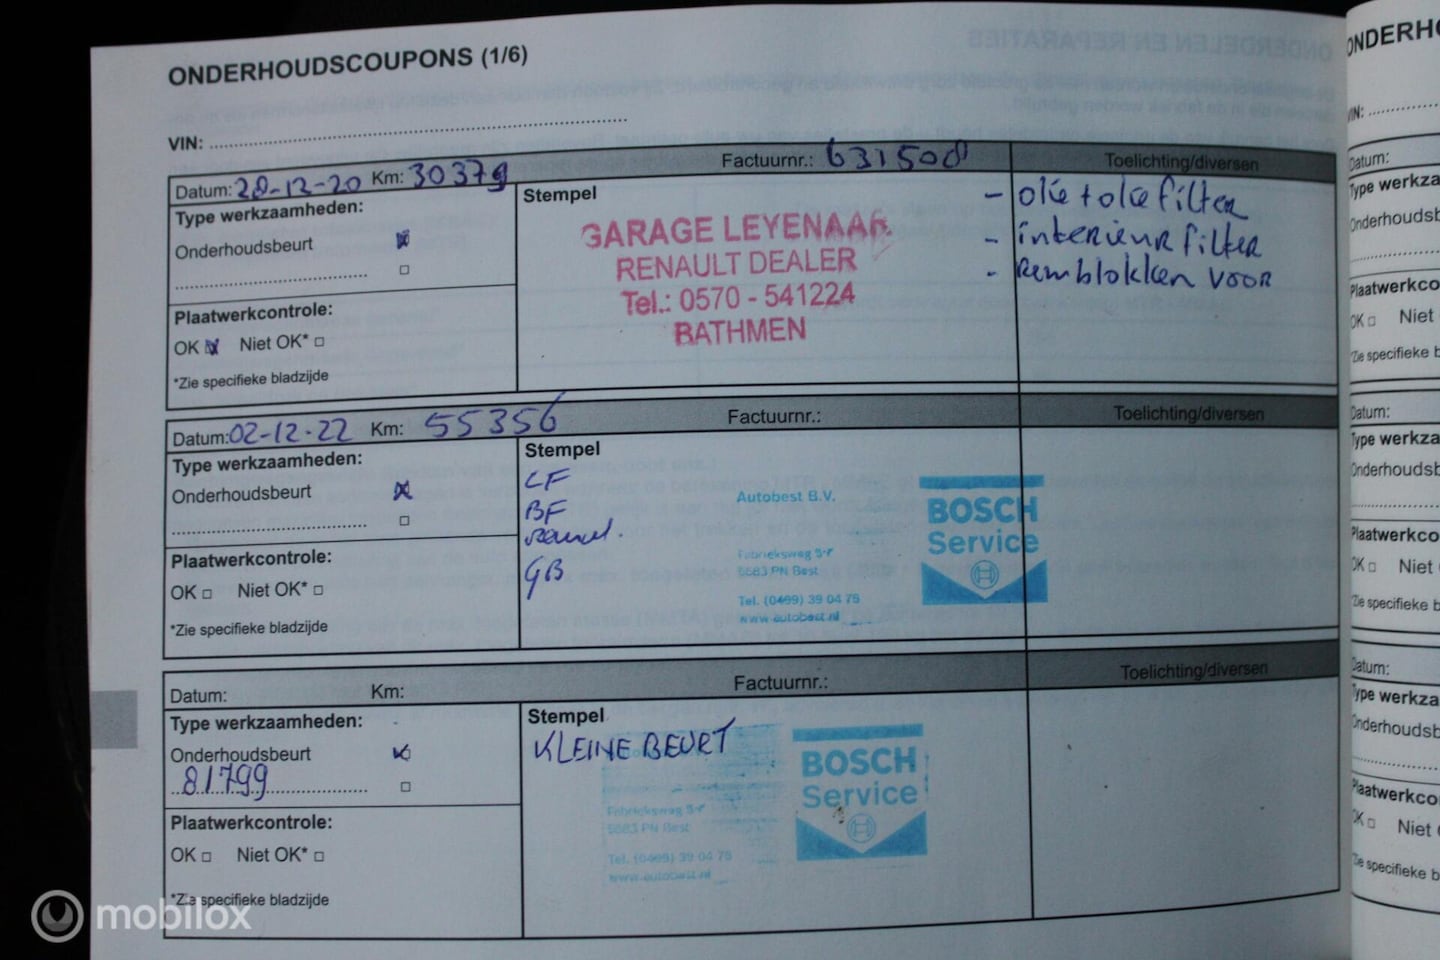 ONDERHOUDSCOUPONS (1/6)
VIN:
Datum: 28-12-20 Km: 30379 Factuurnr.: 631508 Toelichting/diversen
Type werkzaamheden:
Onderhoudsbeurt
Plaatwerkcontrole:
OK Niet OK*
*Zie specifieke bladzijde
Stempel
GARAGE LEYENAAR
RENAULT DEALER
Tel.: 0570 - 541224
BATHMEN
- olie + olie filter
- interieur filter
- Remblokken voor
Datum: 02-12-22 Km: 55356 Factuurnr.: Toelichting/diversen
Type werkzaamheden:
Onderhoudsbeurt
Plaatwerkcontrole:
OK Niet OK*
*Zie specifieke bladzijde
Stempel
LF
BF
GB
Autobest B.V.
Fabrieksweg 5-r
5683 PN Best
Tel. (0499) 39 04 75
www.autobest.nl
BOSCH
Service
Datum: Km: Factuurnr.: Toelichting/diversen
Type werkzaamheden:
Onderhoudsbeurt
81799
Plaatwerkcontrole:
OK Niet OK*
*Zie specifieke bladzijde
Stempel
KLEINE BEURT
Fabrieksweg 5-r
5683 PN Best
Tel. (0499) 39 04 75
www.autobest.nl
BOSCH
Service
ONDERHO
VIN:
Datum:
Type werkza
Onderhoudsb
Plaatwerkco
OK Niet
*Zie specifieke b
Datum:
Type werkza
Onderhoudsb
Plaatwerkco
OK Niet
*Zie specifieke b
Datum:
Type werkza
Onderhoudsb
Plaatwerkco
OK Niet
*Zie specifieke b
mobilox